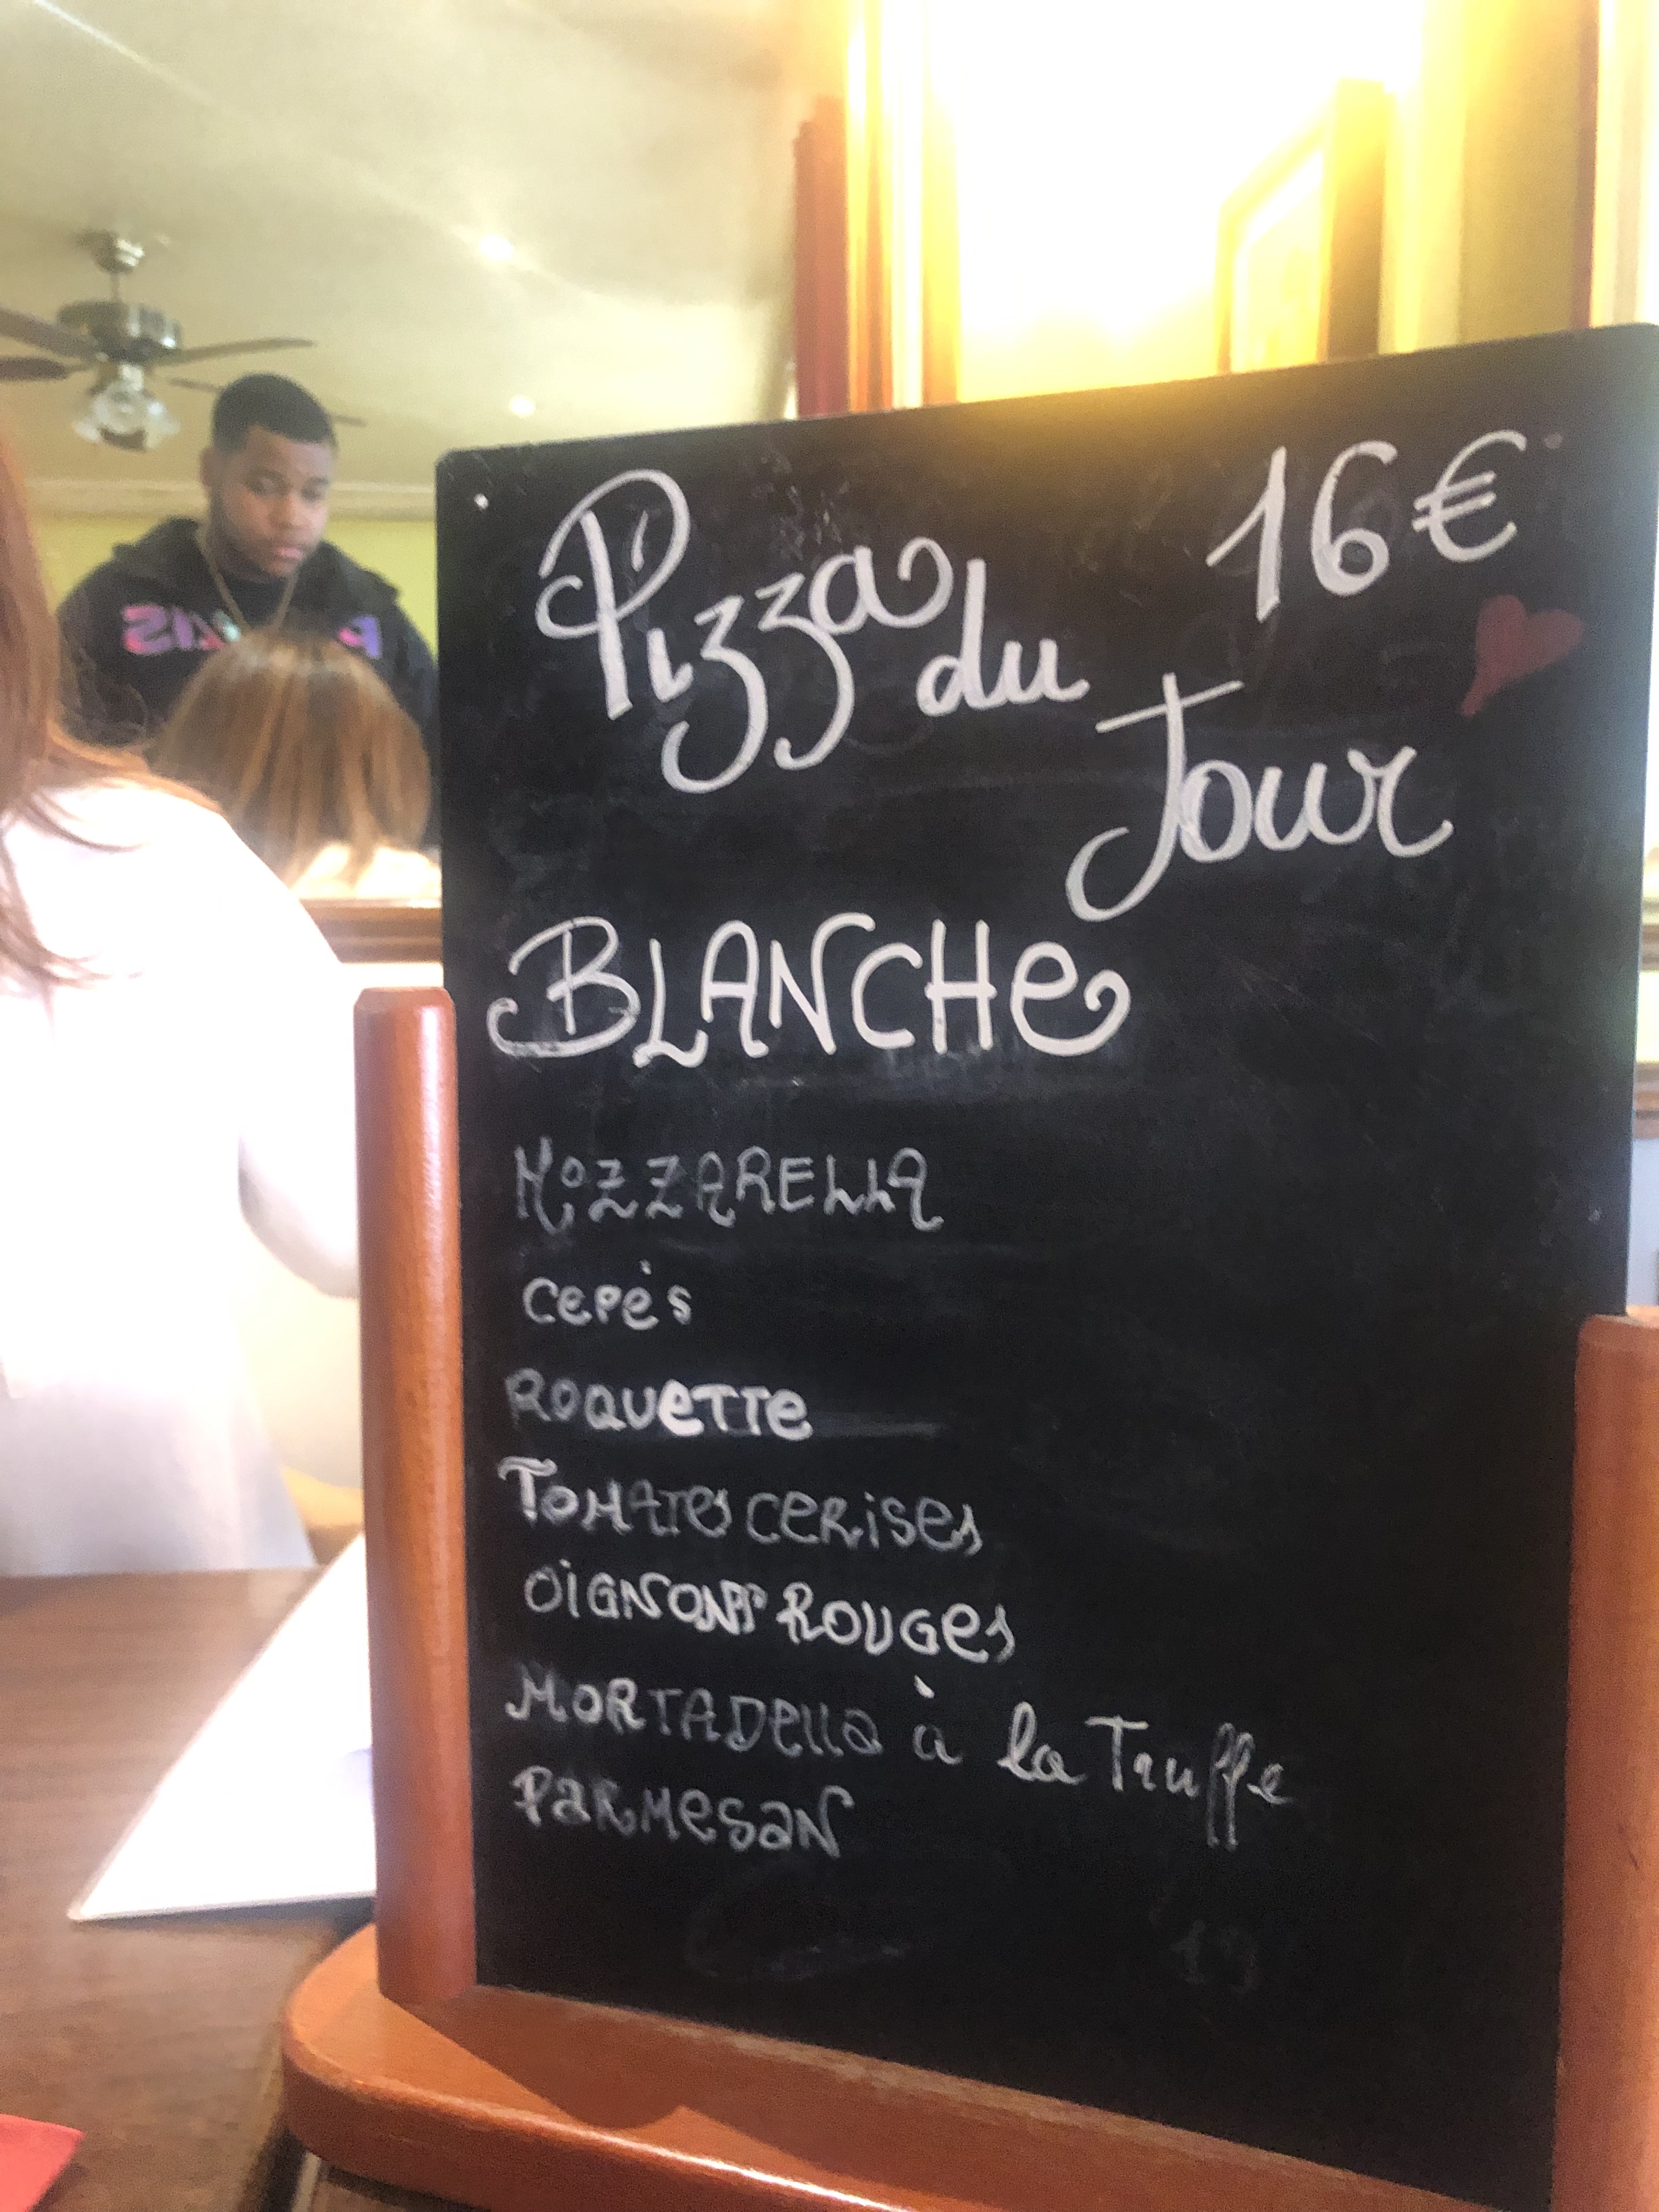 Pizza du Jour 16€
BLANCHE
MOZZARELLA
CEPES
ROQUETTE
TOMATES CERISES
OIGNONS ROUGES
MORTADELLA à la Truffe
PARMESAN